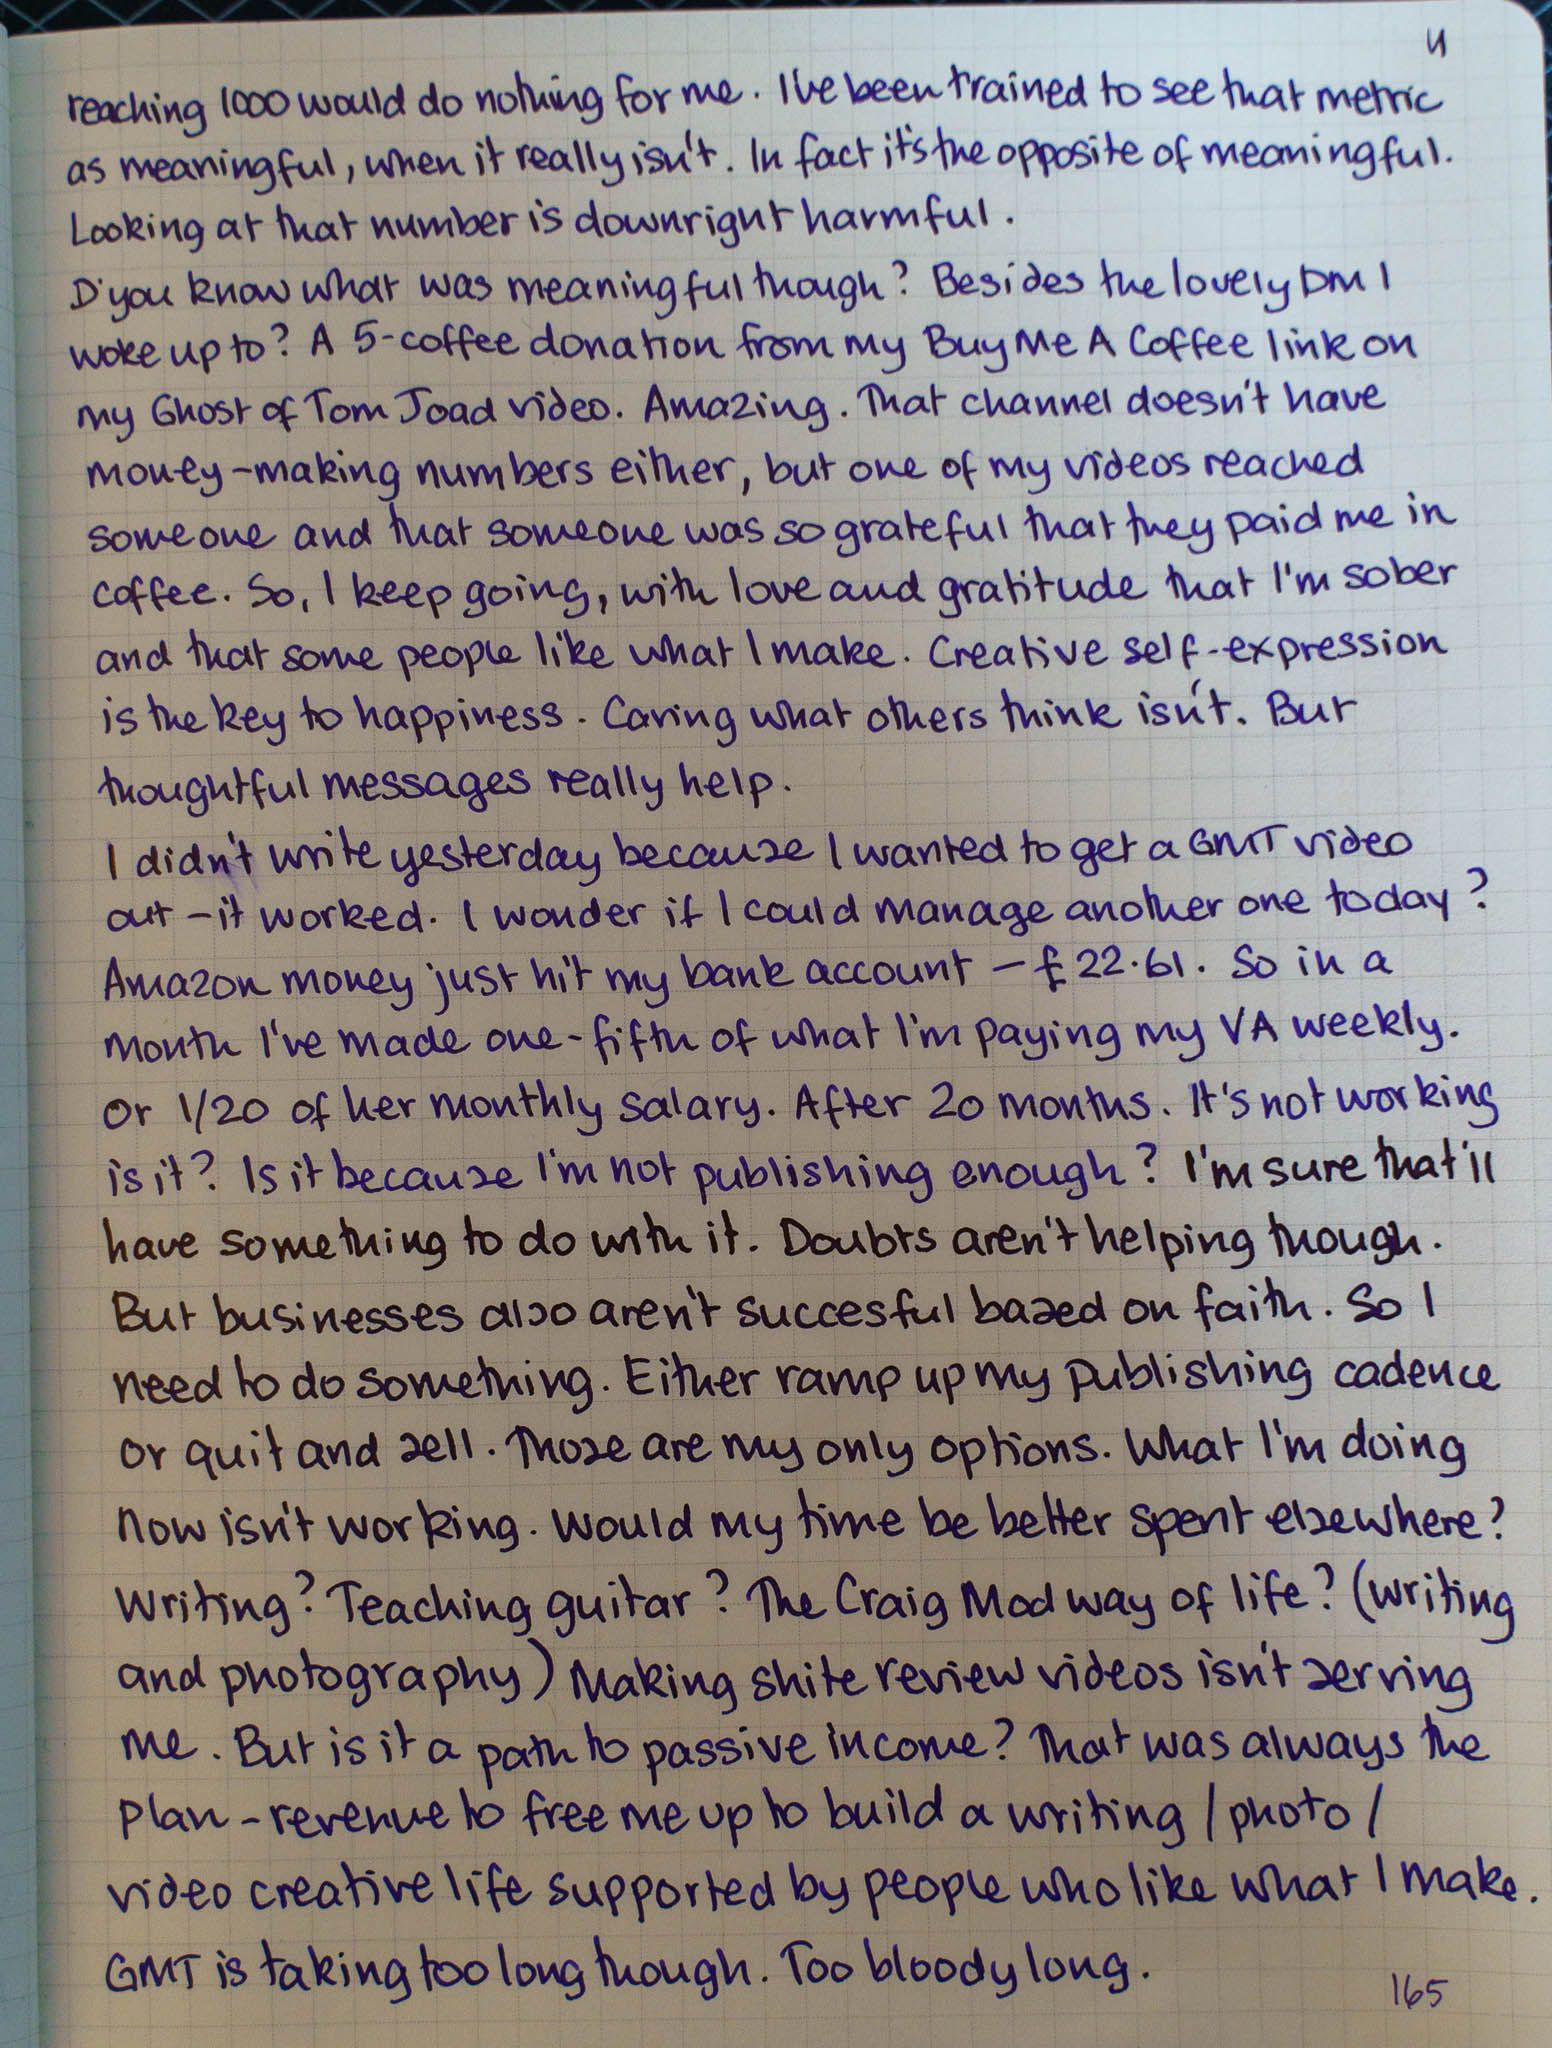 4
reaching 1000 would do nothing for me. I've been trained to see that metric
as meaningful, when it really isn't. In fact it's the opposite of meaningful.
Looking at that number is downright harmful.
D'you know what was meaningful though? Besides the lovely DM I
woke up to? A 5-coffee donation from my Buy Me A Coffee link on
my Ghost of Tom Joad video. Amazing. That channel doesn't have
money-making numbers either, but one of my videos reached
someone and that someone was so grateful that they paid me in
coffee. So, I keep going, with love and gratitude that I'm sober
and that some people like what I make. Creative self-expression
is the key to happiness. Caring what others think isn't. But
thoughtful messages really help.
I didn't write yesterday because I wanted to get a GMT video
out - it worked. I wonder if I could manage another one today?
Amazon money just hit my bank account - £22.61. So in a
month I've made one-fifth of what I'm paying my VA weekly.
Or 1/20 of her monthly salary. After 20 months. It's not working
is it? Is it because I'm not publishing enough? I'm sure that'll
have something to do with it. Doubts aren't helping though.
But businesses also aren't succesful based on faith. So I
need to do something. Either ramp up my publishing cadence
or quit and sell. Those are my only options. What I'm doing
now isn't working. Would my time be better spent elsewhere?
Writing? Teaching guitar? The Craig Mod way of life? (writing
and photography) Making shite review videos isn't serving
me. But is it a path to passive income? That was always the
plan - revenue to free me up to build a writing / photo /
video creative life supported by people who like what I make.
GMT is taking too long though. Too bloody long.
165